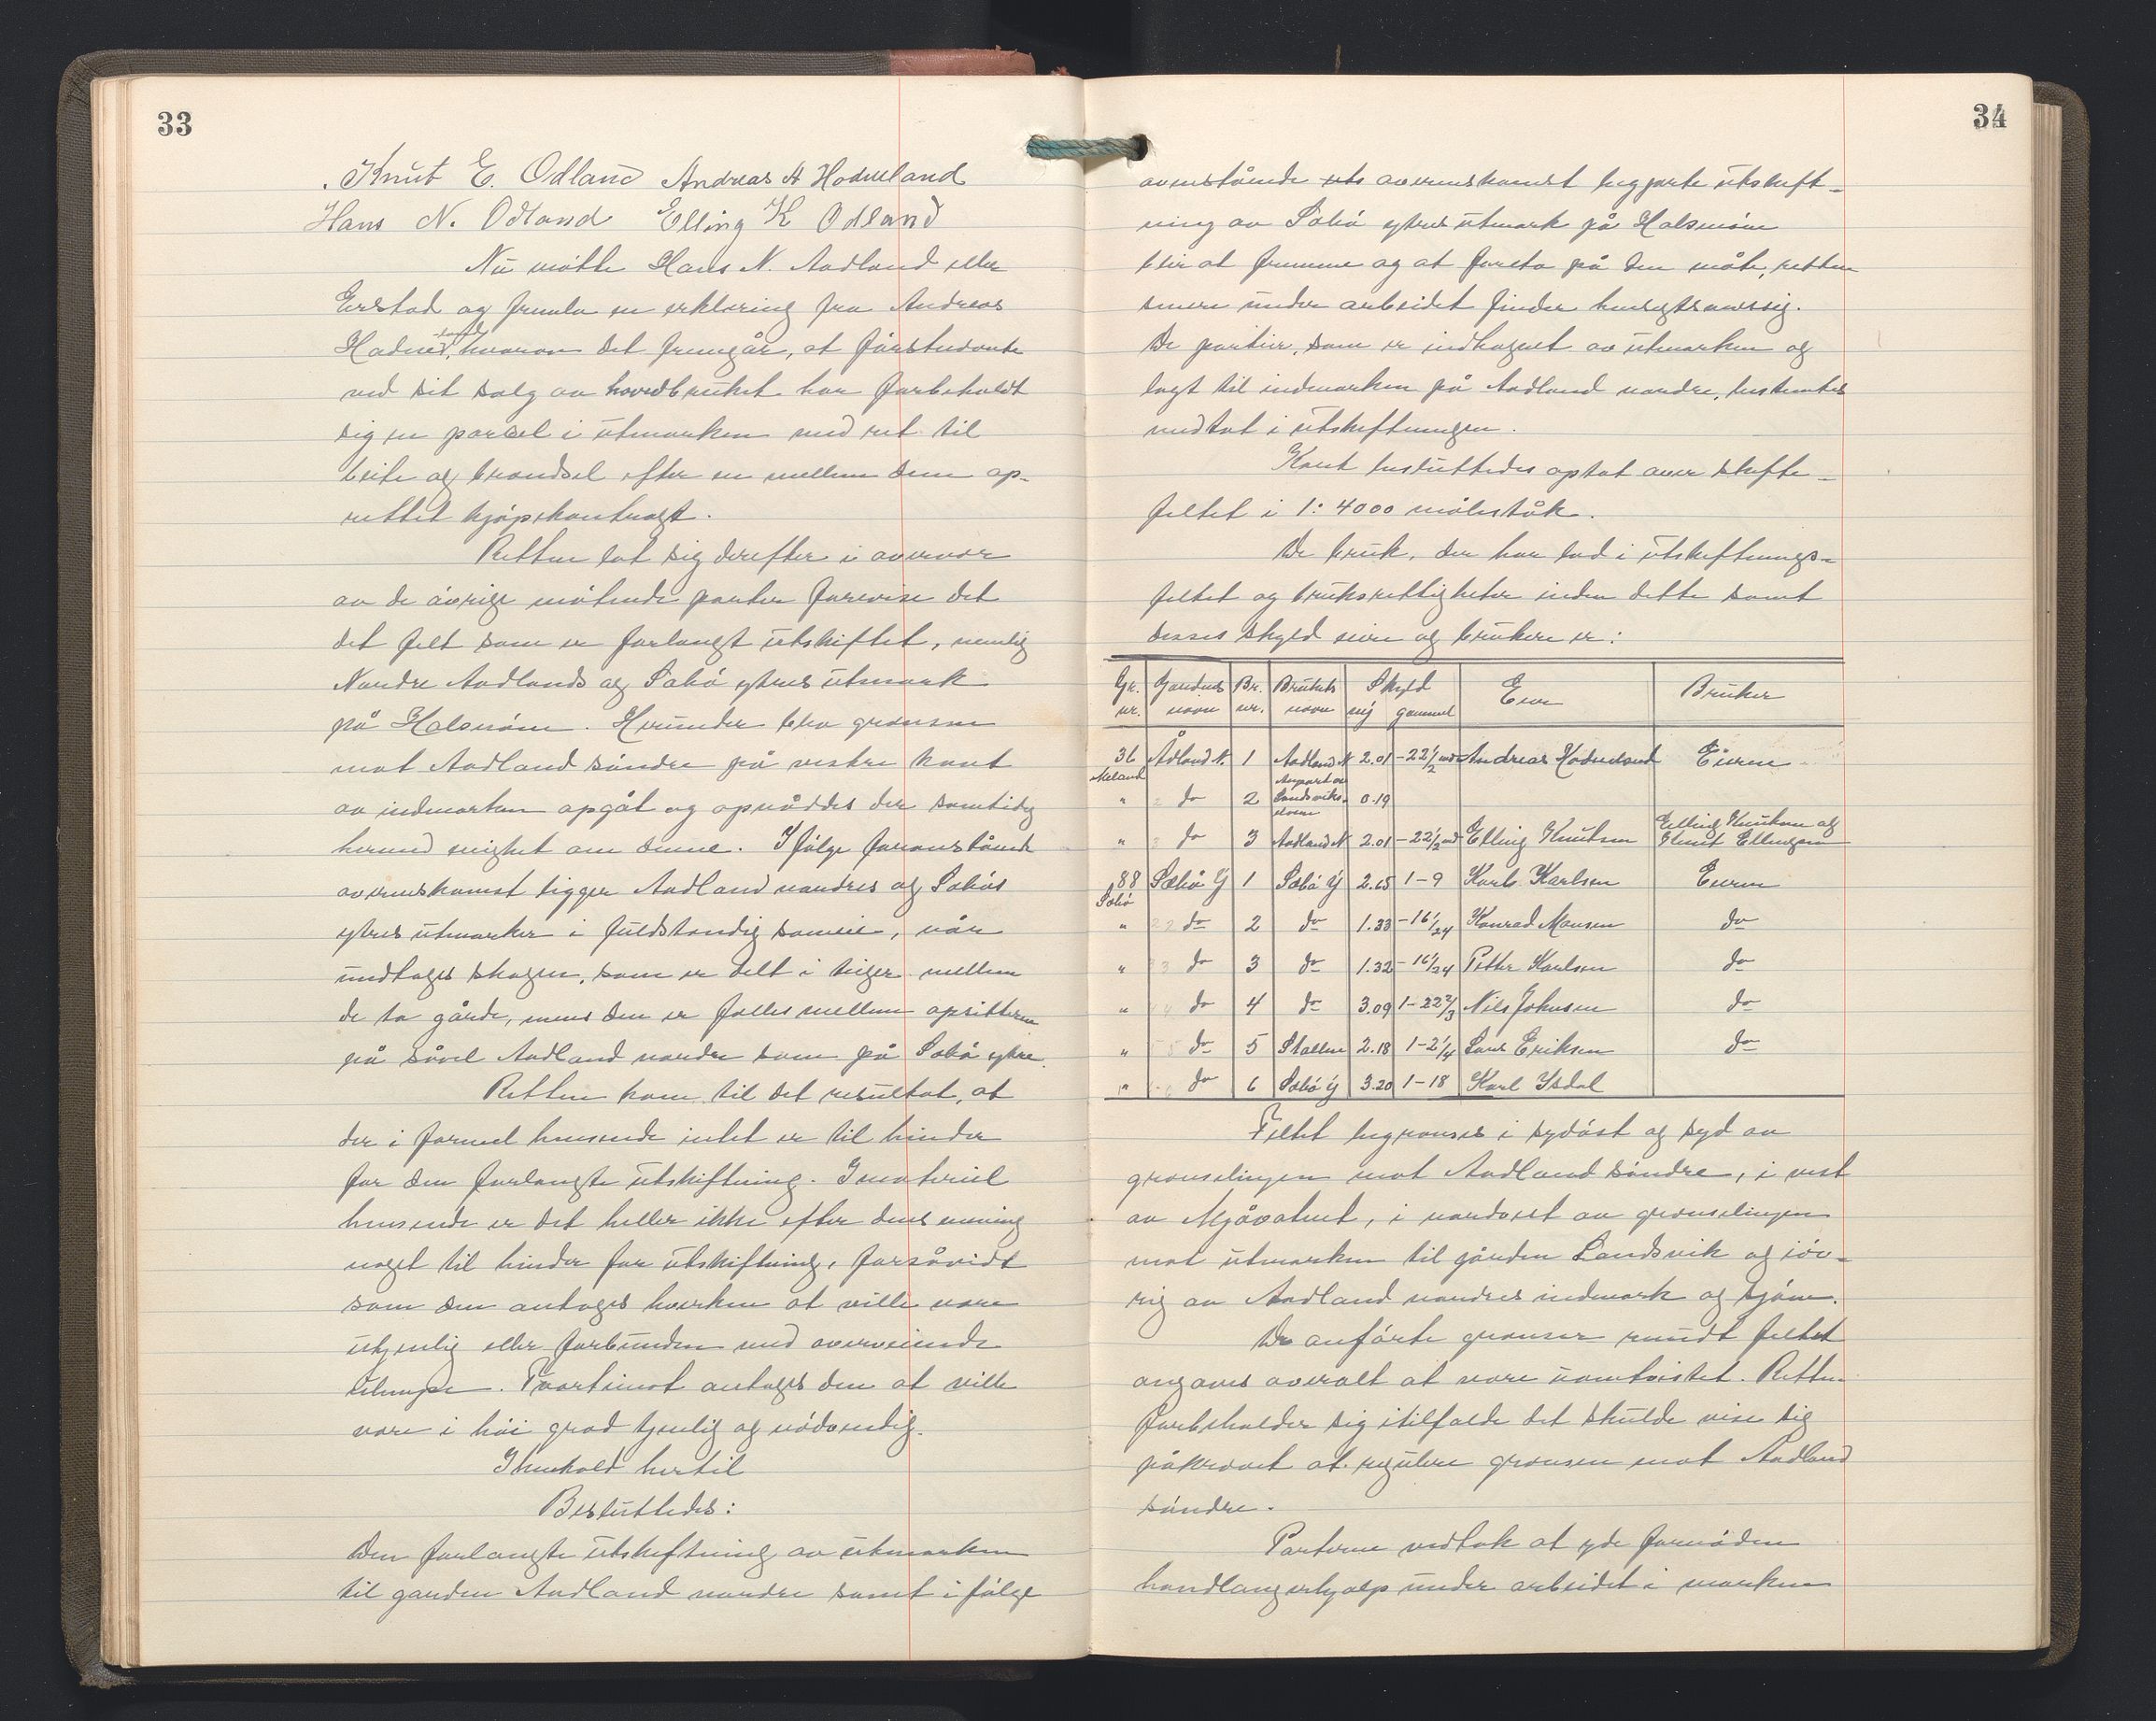 33
Knut E. Odland Andreas A Hodneland
Hans N. Odland Elling K Odland
Nu møtte Hans N. Aadland eller
Erstad og fremla en erklæring fra Andreas
Hodneland, hvorav det fremgår, at førstnævnte
ved sit salg av hovedbruket har forbeholdt
sig en parsel i utmarken med ret til
beite og brændsel efter en mellem dem op-
rettet kjøpskontrakt.
Retten lot sig derefter i overvær
av de øvrige møtende parter forevise det
det felt som er forlangt utskiftet, nemlig
Nordre Aadlands og Sæbø ytres utmark
på Holsnøen. Herunder blev grænsen
mot Aadland søndre på vestre kant
av indmarken opgåt og opnåddes der samtidig
hermed enighet om denne. Ifølge foranstående
overenskomst ligger Aadland nordres og Sæbøs
ytres utmarker i fuldstændig sameie, når
undtages skogen, som er delt i teiger mellem
de to gårde, mens den er fælles mellem opsitterne
på såvel Aadland nordre som på Sæbø ytre.
Retten kom til det resultat, at
der i formel henseende intet er til hinder
for den forlangte utskiftning. I materiel
henseende er det heller ikke efter dens mening
noget til hinder for utskiftning, forsåvidt
som den antages hverken at ville være
utjenlig eller forbunden med overveiende
ulempe. Tvertimot antages den at ville
være i høi grad tjenlig og nødvendig.
I henhold hertil
Besluttedes:
Den forlangte utskiftning av utmarken
til gaarden Aadland nordre samt ifølge
34
ovenstående overenskomst begjærte utskift-
ning av Sæbø ytres utmark på Holsnøen
blir at fremme og at foreta på den måte, retten
senere under arbeidet finder hensigtsmæssig.
De partier, som er indhegnet av utmarken og
lagt til indmarken på Aadland nordre, bestemtes
medtat i utskiftningen.
Kart besluttedes optat over skifte-
feltet i 1:4000 målestok.
De bruk, der har lod i utskiftnings-
feltet og bruksrettigheter inden dette samt
disses skyld eiere og brukere er:
Gr. nr. Gaardens navn Br. nr. Brukets navn Skyld ny gammel Eier Bruker
36 Meland Ådland N. 1 Aadland N 2.01 -22 1/2 Andreas Hodneland Eieren
" do 2 Anpart av Landsviks- 0.19
" do 3 Aadland N 2.01 -22 1/2 Elling Knutsen Elling Knutsen og Knut Ellingsen
88 Sæbø Sæbø Y 1 Sæbø Y 2.65 1-9 Karl Karlsen Eieren
" do 2 do 1.33 -16 1/24 Konrad Monsen do
" do 3 do 1.32 -16 1/24 Petter Karlsen do
" do 4 do 3.09 1-22 2/3 Nils Johnsen do
" do 5 Stallen 2.18 1-2 1/4 Lars Eriksen do
" do 6 Sæbø Y 3.20 1-18 Karl Isdal
Feltet begrænses i sydøst og syd av
grænselinjen mot Aadland søndre, i vest
av Mjåvatnet, i nordvest av grænselinjen
mot utmarken til gården Landsvik og iøv-
rig av Aadland nordres indmark og sjøen.
De anførte grænser rundt feltet
angaves overalt at være uomtvistet. Retten
forbeholder sig i tilfælde det skulde vise sig
påkrævet at regulere grænsen mot Aadland
søndre.
Parterne vedtok at yde fornøden
handlangerhjælp under arbeidet i marken